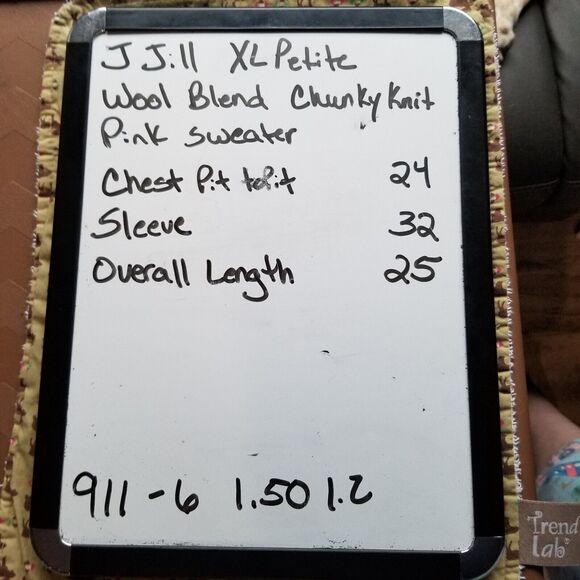 J Jill XL Petite
Wool Blend Chunky Knit
Pink sweater
Chest Pit to Pit 24
Sleeve 32
Overall Length 25
911 -6 1.50 1.2
Trend
Lab